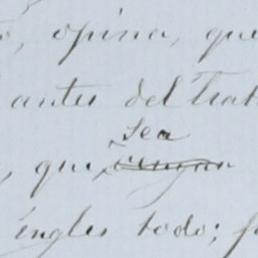 opina, que
antes del Trat
sea
, que vengan
ingles todo;